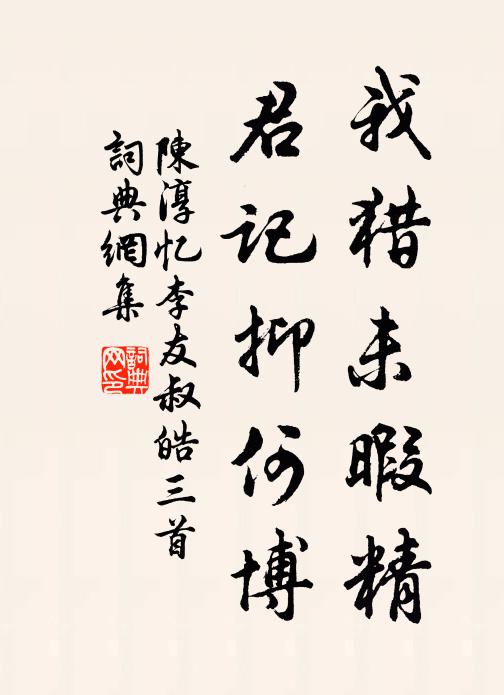 我猎未暇精
君记抑何博
陳淳忆李友叔皓三首
詞典網集
詞典网印